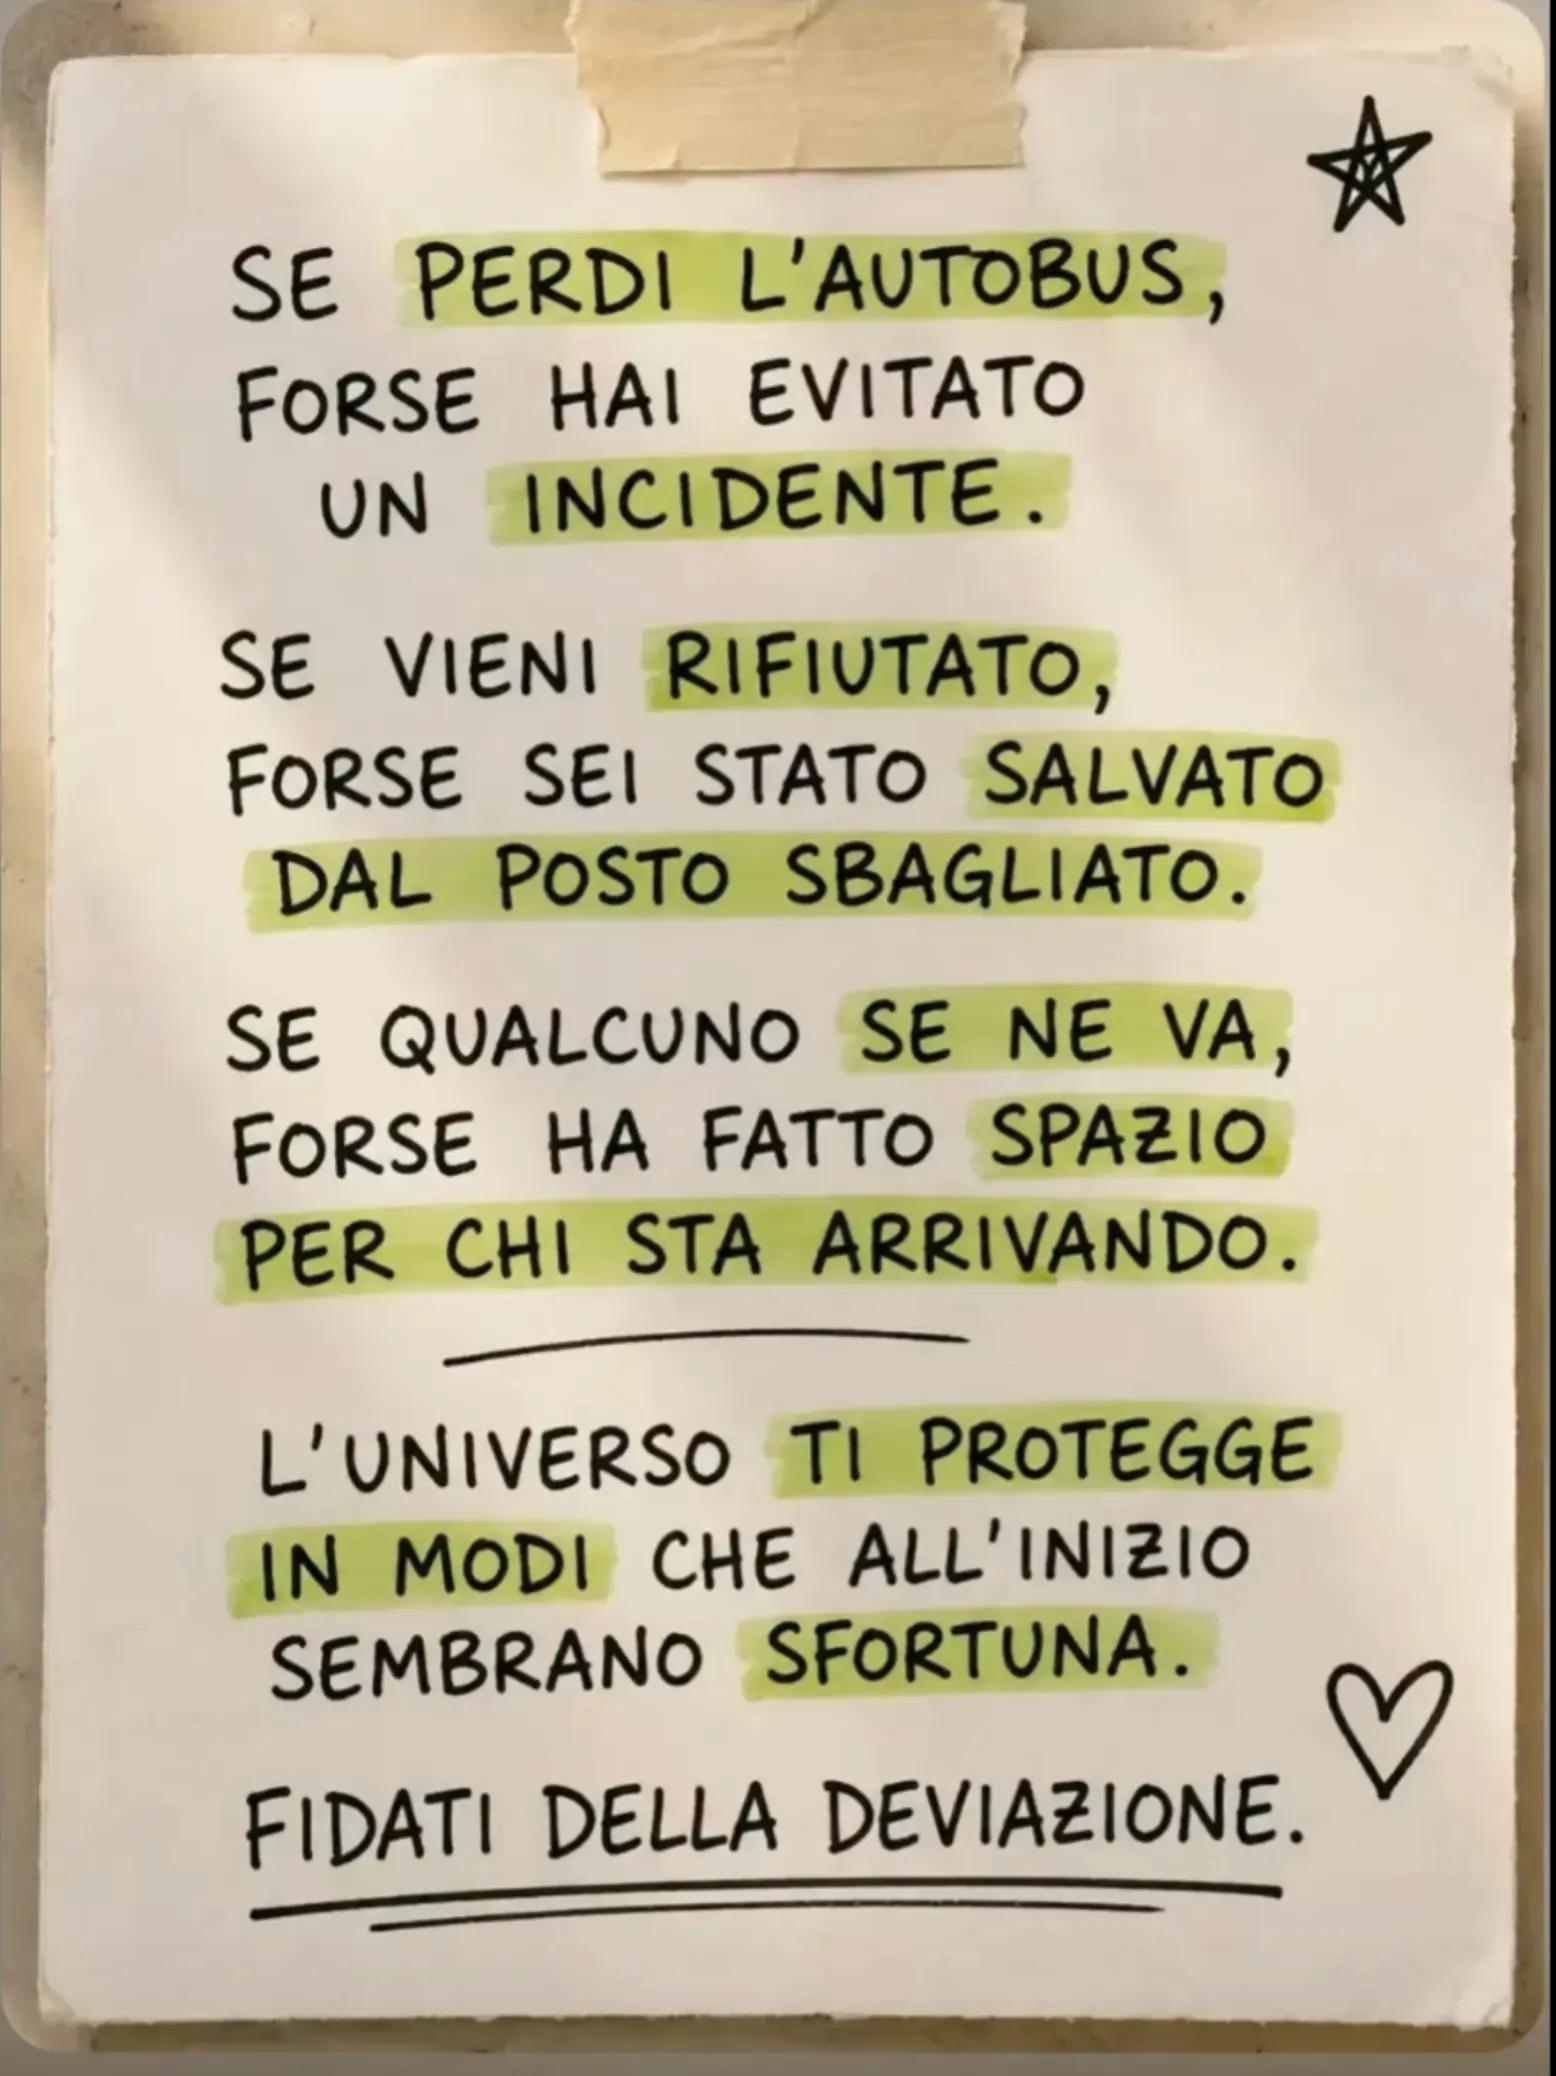 SE PERDI L'AUTOBUS,
FORSE HAI EVITATO
UN INCIDENTE.
SE VIENI RIFIUTATO,
FORSE SEI STATO SALVATO
DAL POSTO SBAGLIATO.
SE QUALCUNO SE NE VA,
FORSE HA FATTO SPAZIO
PER CHI STA ARRIVANDO.
L'UNIVERSO TI PROTEGGE
IN MODI CHE ALL'INIZIO
SEMBRANO SFORTUNA.
FIDATI DELLA DEVIAZIONE.